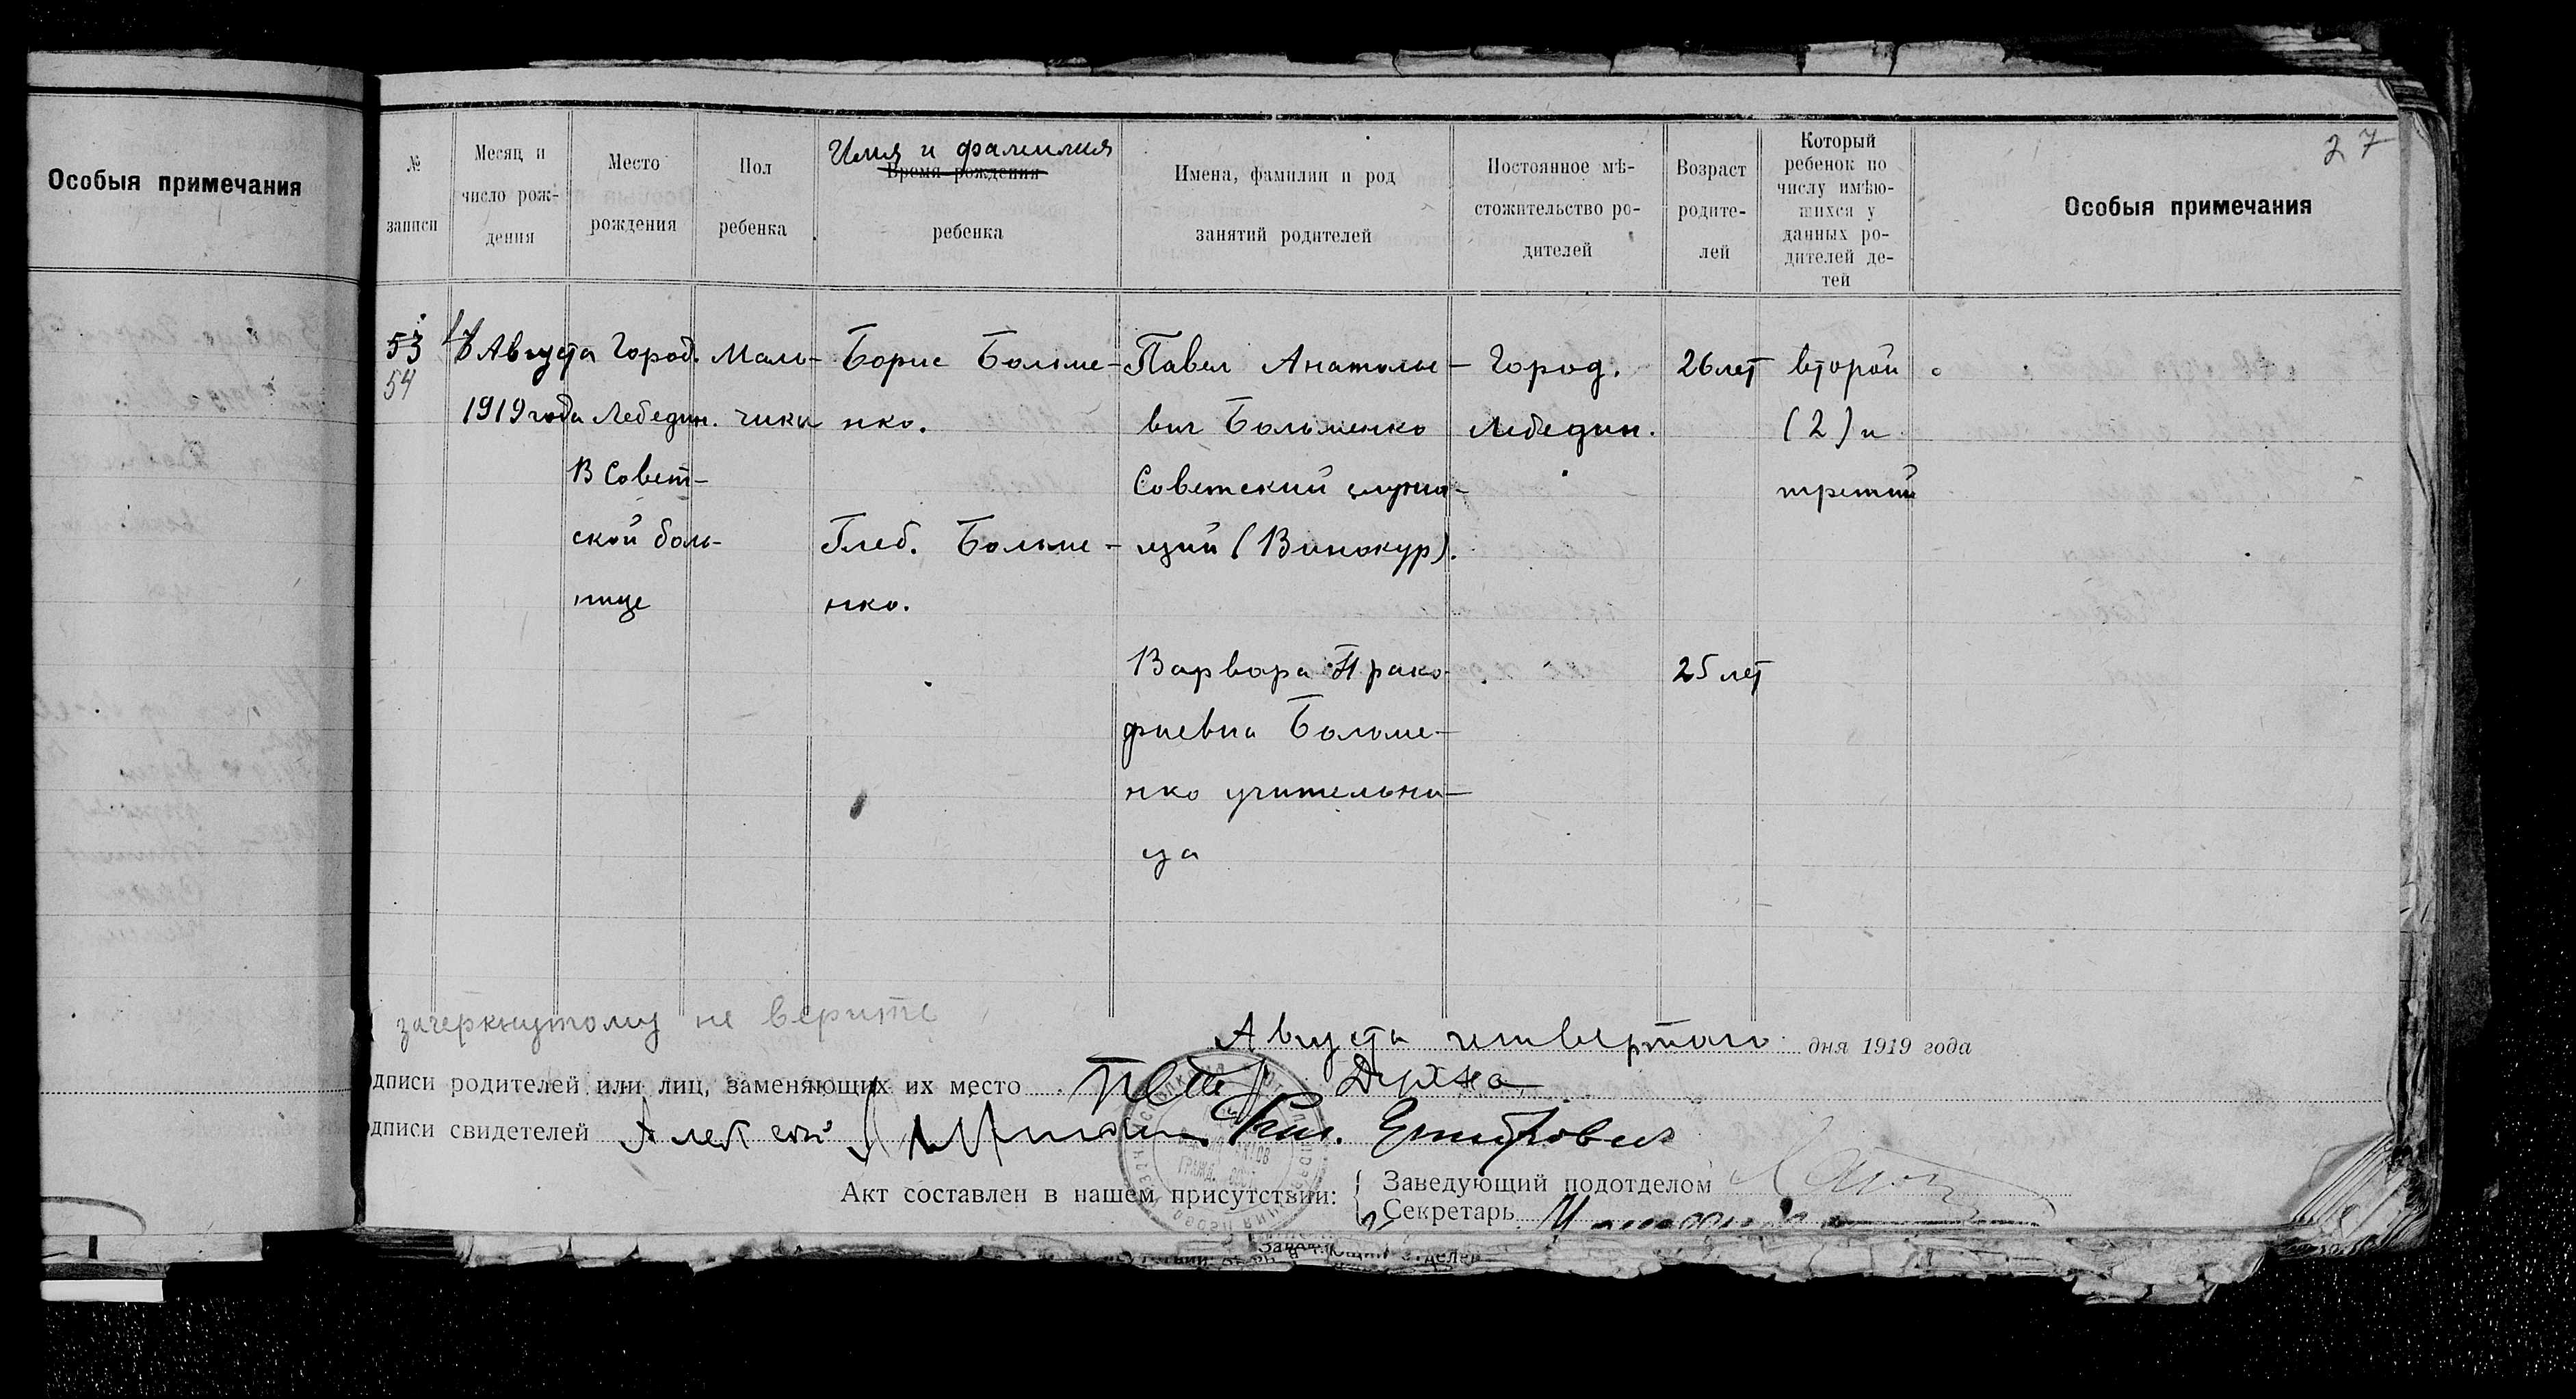 27
Особыя примечания
№ записи
Месяц и число рождения
Место рождения
Пол ребенка
Имя и фамилия
Время рождения
ребенка
Имена, фамилии и род занятий родителей
Постоянное мѣстожительство родителей
Возраст родителей
Который ребенок по числу имѣющихся у данных родителей детей
Особыя примечания
53
54
Августа
1919 года
Город.
Лебедин.
В Совет-
ской боль-
нице
Маль-
чики
Борис Больме-
нко.
Глеб. Больме-
нко.
Павел Анатолье-
вич Больменко
Советский служа-
щий (Винокур).
Варвара Прако-
фиевна Больме-
нко учительни-
ца
Город.
Лебедин.
26 лет
25 лет
второй
(2) и
третий
зачеркнутому не верить
Августа четвертого дня 1919 года
дписи родителей или лиц, заменяющих их место Петр
дписи свидетелей Алексей
Акт составлен в нашем присутствии:
Заведующий подотделом
Секретарь